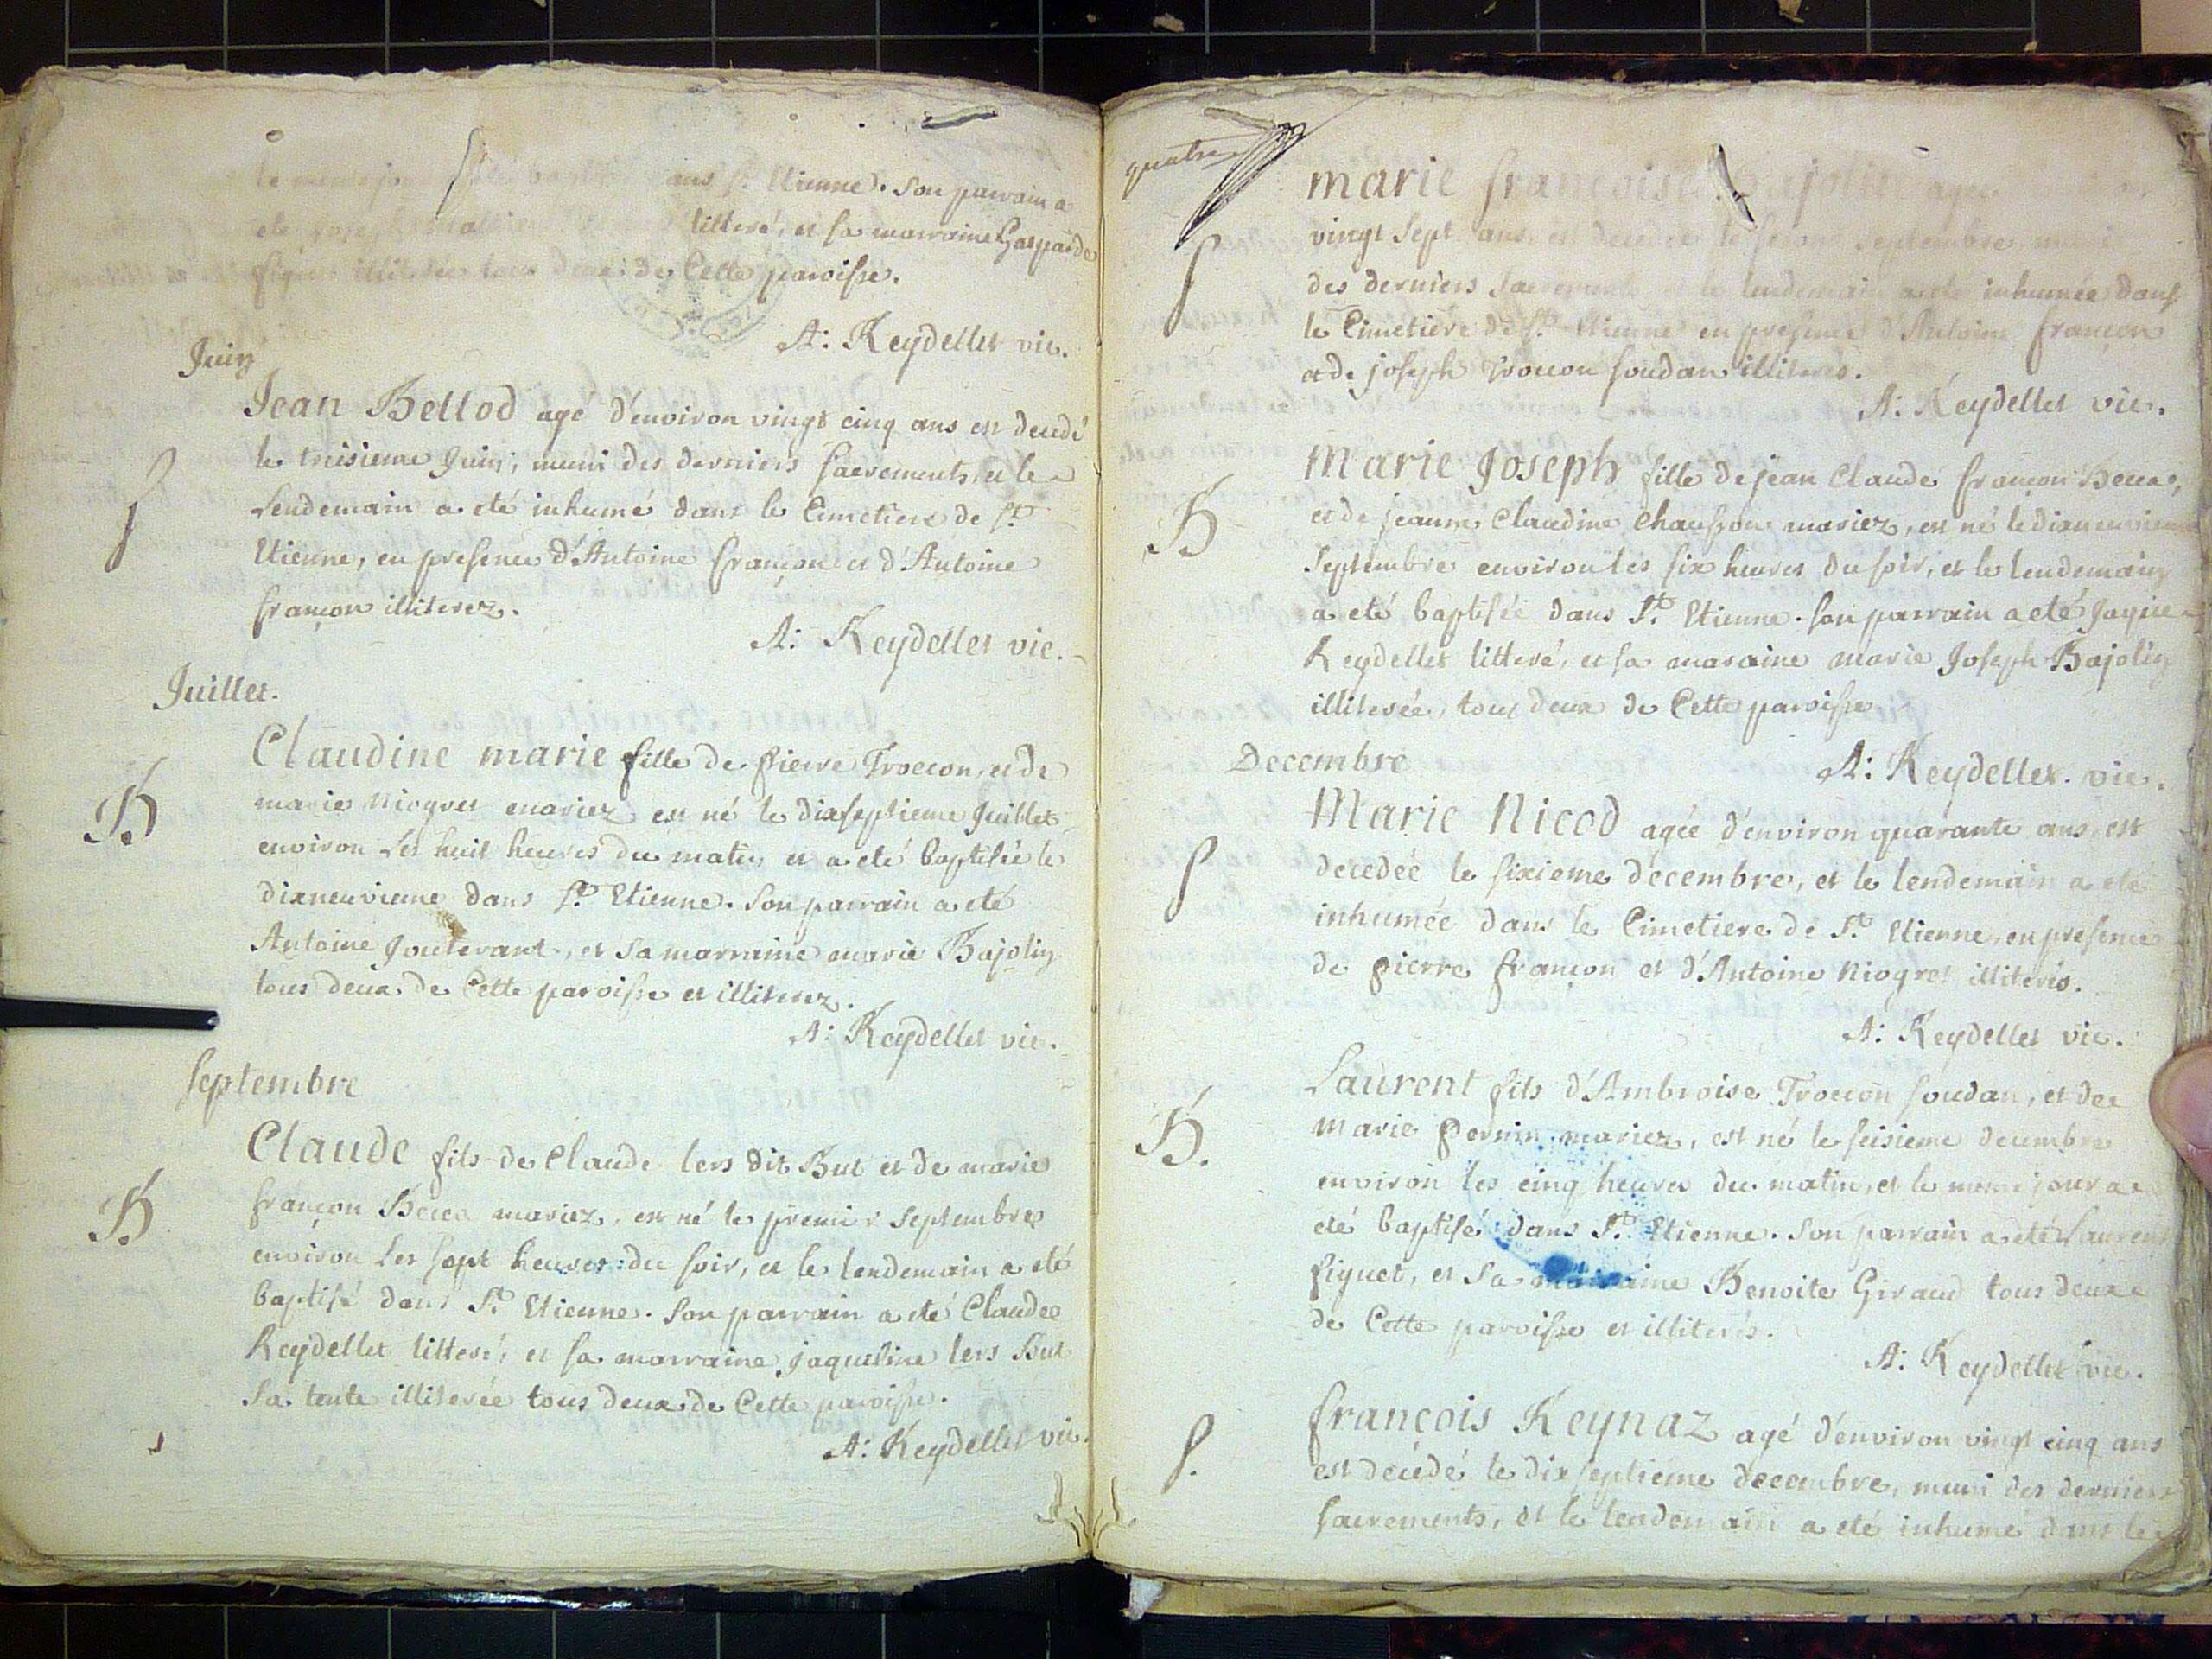 le meme jour a été baptisé dans St. Etienne. Son parrain a
été joseph litteré, et sa marraine Gasparde
illiterée tous deux de Cette paroisse.
A: Reydellet vic.
Juin
Jean Bellod agé d'environ vingt cinq ans est decedé
S
le troisieme Juin, muni des derniers sacrements, et le
Lendemain a eté inhumé dans le Cimetiere de St.
Etienne, en presence d'Antoine françon et d'Antoine
françon illiterez.
A: Reydellet vic.
Juillet.
Claudine marie fille de pierre Troccon, et de
B
marie Niogret mariez est né le dixseptieme Juillet
environ Les huit heures du matin et a eté baptisée le
dixneuvieme dans St. Etienne. Son parrain a eté
Antoine Jouterant, et sa marraine marie Bajolin
tous deux de Cette paroisse et illiterez.
A: Reydellet vic.
septembre
Claude fils de Claude lers dit But et de marie
B
françon Becca mariez, est né le premier Septembre
environ Les sept heures du soir, et le lendemain a eté
baptisé dans St. Etienne. Son parrain a eté Claude
Reydellet litteré, et sa marraine jaqueline lers But
sa tente illiterée tous deux de Cette paroisse.
A: Reydellet vic.
quatre
marie françoise Bajolin agée
vingt sept ans, est decedée le second septembre munie
S
des derniers Sacrements et le lendemain a eté inhumée dans
le Cimetiere de St. Etienne en presence d'Antoine françon
et de joseph Troccon soudan illiterés.
A: Reydellet vic.
Marie Joseph fille de jean Claude françon Becca,
B
et de jeanne Claudine Chausson mariez, est né le dixneuvieme
Septembre environ les six heures du soir, et le lendemain
a eté baptisée dans St. Etienne. son parrain a eté Jaque
Reydellet litteré, et sa maraine marie Joseph Bajolin
illiterée, tous deux de Cette paroisse
A: Reydellet. vic.
Decembre
Marie Nicod agée d'environ quarante ans, est
S
decedée le sixieme decembre, et le lendemain a eté
inhumée dans le Cimetiere de St. Etienne, en presence
de pierre françon et d'Antoine Niogret illiterés.
A: Reydellet vic.
Laurent fils d'Ambroise Troccon soudan, et de
B.
Marie Pernin mariez, est né le seisieme decembre
environ les cinq heures du matin, et le meme jour a
eté baptisé dans St. Etienne. Son parrain a eté Laurent
figuet, et Sa marraine Benoite Giraud tous deux
de Cette paroisse et illiterés.
A: Reydellet vic.
françois Reynaz agé d'environ vingt cinq ans
S.
est decedé le dixseptieme decembre, muni des derniers
sacrements, et le lendemain a eté inhumé dans le